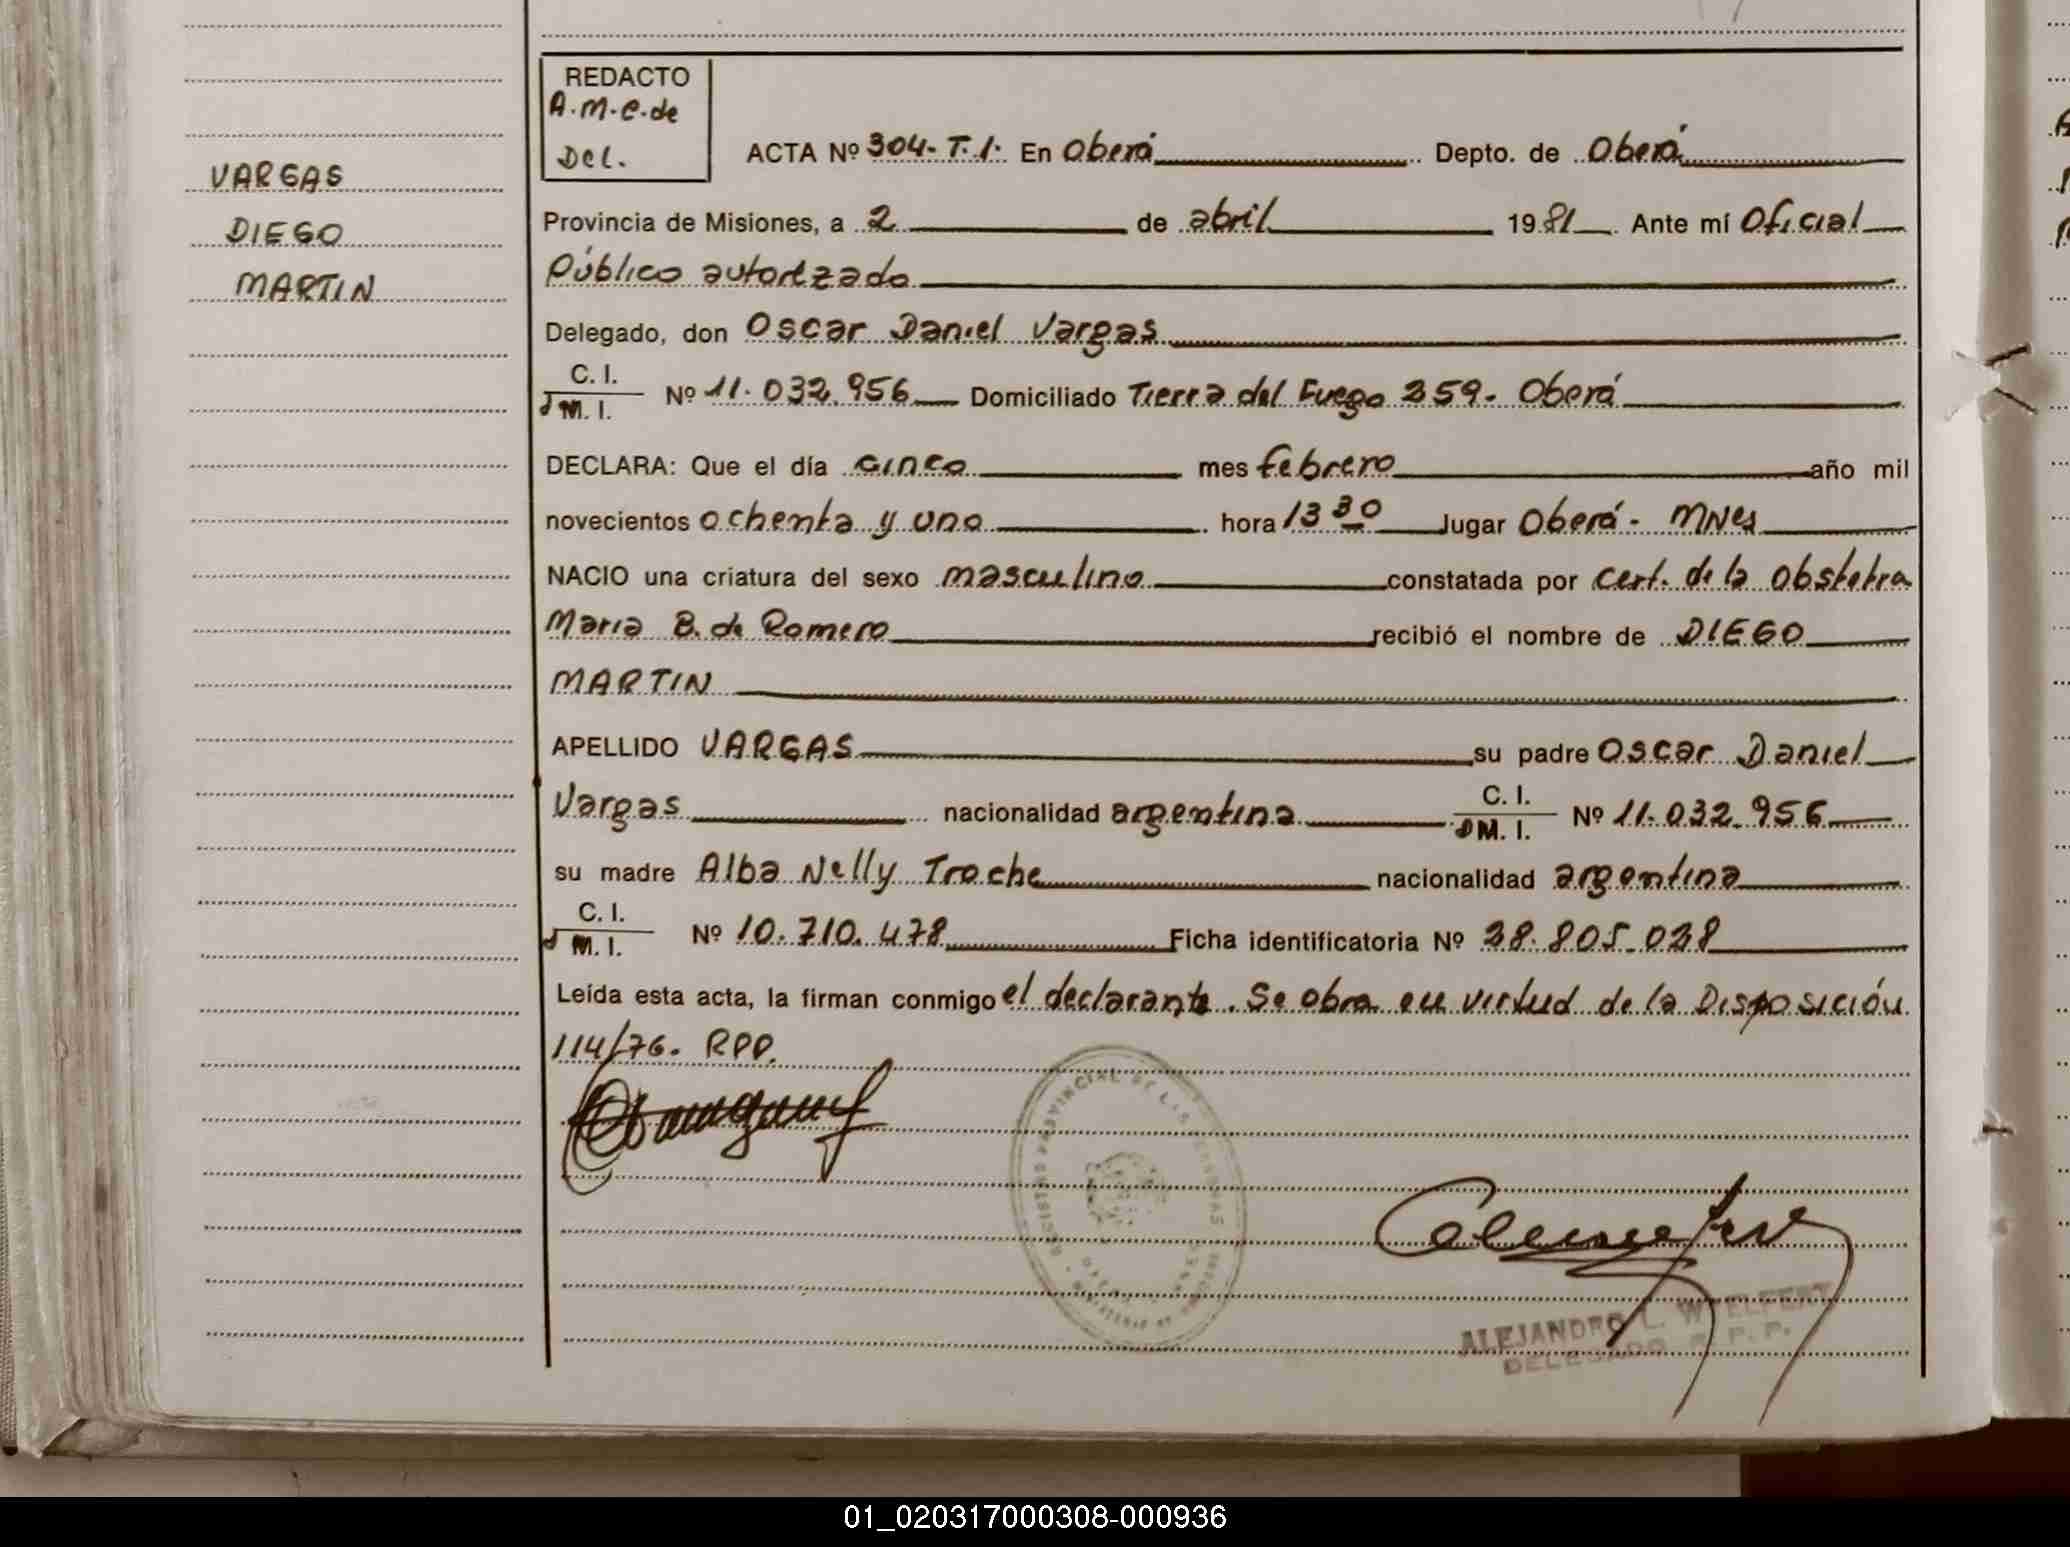 REDACTO
A.M.C. de
Del.
VARGAS
DIEGO
MARTIN
ACTA Nº 304-T.I. En Oberá Depto. de Oberá
Provincia de Misiones, a 2 de abril 1981 Ante mí Oficial
Público autorizado
Delegado, don Oscar Daniel Vargas
C. I.
M. I. Nº 11.032.956 Domiciliado Tierra del Fuego 259- Oberá
DECLARA: Que el día cinco mes febrero año mil
novecientos ochenta y uno hora 13 30 lugar Oberá - MNes
NACIO una criatura del sexo masculino constatada por cert. de la obstetra
Maria B. de Romero recibió el nombre de DIEGO
MARTIN
APELLIDO VARGAS su padre Oscar Daniel
Vargas nacionalidad argentina C. I.
M. I. Nº 11.032.956
su madre Alba Nelly Troche nacionalidad argentina
C. I.
M. I. Nº 10.710.478 Ficha identificatoria Nº 28.805.028
Leída esta acta, la firman conmigo el declarante. Se obra en virtud de la Disposición
114/76. RPP.
ALEJANDRO L.
DELEGADO R. P. P.
01_020317000308-000936